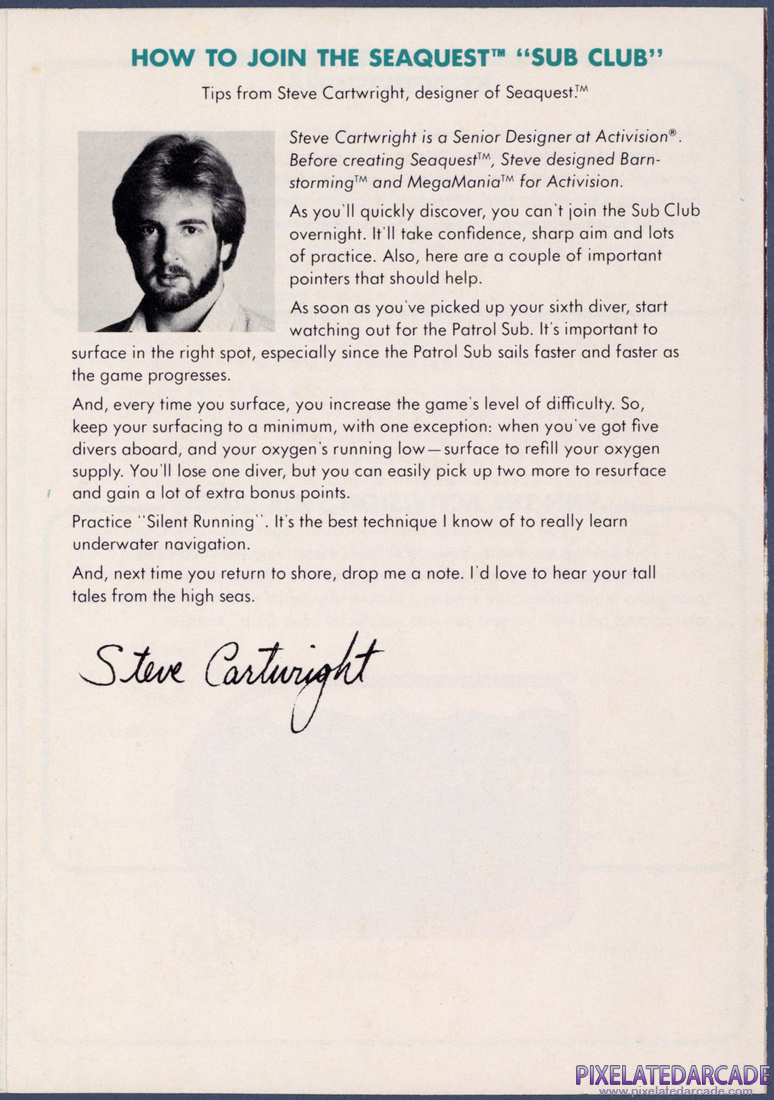 HOW TO JOIN THE SEAQUEST™ “SUB CLUB”
Tips from Steve Cartwright, designer of Seaquest.™
Steve Cartwright is a Senior Designer at Activision®.
Before creating Seaquest™, Steve designed Barn-
storming™ and MegaMania™ for Activision.
As you'll quickly discover, you can't join the Sub Club
overnight. It'll take confidence, sharp aim and lots
of practice. Also, here are a couple of important
pointers that should help.
As soon as you've picked up your sixth diver, start
watching out for the Patrol Sub. It's important to
surface in the right spot, especially since the Patrol Sub sails faster and faster as
the game progresses.
And, every time you surface, you increase the game's level of difficulty. So,
keep your surfacing to a minimum, with one exception: when you've got five
divers aboard, and your oxygen's running low—surface to refill your oxygen
supply. You'll lose one diver, but you can easily pick up two more to resurface
and gain a lot of extra bonus points.
Practice “Silent Running”. It's the best technique I know of to really learn
underwater navigation.
And, next time you return to shore, drop me a note. I'd love to hear your tall
tales from the high seas.
Steve Cartwright
PIXELATEDARCADE
www.pixelatedarcade.com